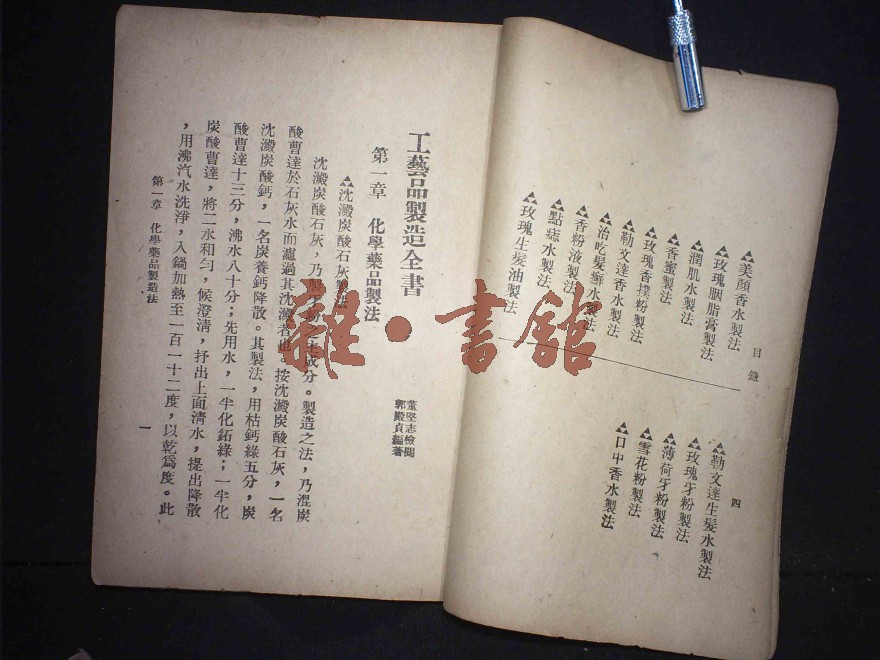 目錄
四
▲美顏香水製法
▲玫瑰胭脂膏製法
▲潤肌水製法
▲香蜜製法
▲玫瑰香撲粉製法
▲勒文達香水製法
▲治吃髮癬水製法
▲香粉液製法
▲點痣水製法
▲玫瑰生髮油製法
▲勒文達生髮水製法
▲玫瑰牙粉製法
▲薄荷牙粉製法
▲雪花粉製法
▲口中香水製法
工藝品製造全書
董堅志檢閱
郭殿貞編著
第一章 化學藥品製法
▲沈澱炭酸石灰製法
沈澱炭酸石灰,乃製牙粉之主成分。製造之法,乃混炭
酸曹達於石灰水而濾過其沈澱者也。按沈澱炭酸石灰,一名
沈澱炭酸鈣,一名炭養鈣降散。其製法,用枯鈣綠五分,炭
酸曹達十三分,沸水八十分;先用水,一半化鉐綠;一半化
炭酸曹達,將二水和勻,候澄清,抒出上面清水,提出降散
,用沸汽水洗淨,入鍋加熱至一百一十二度,以乾爲度。此
第一章 化學藥品製造法
一
雜·書館